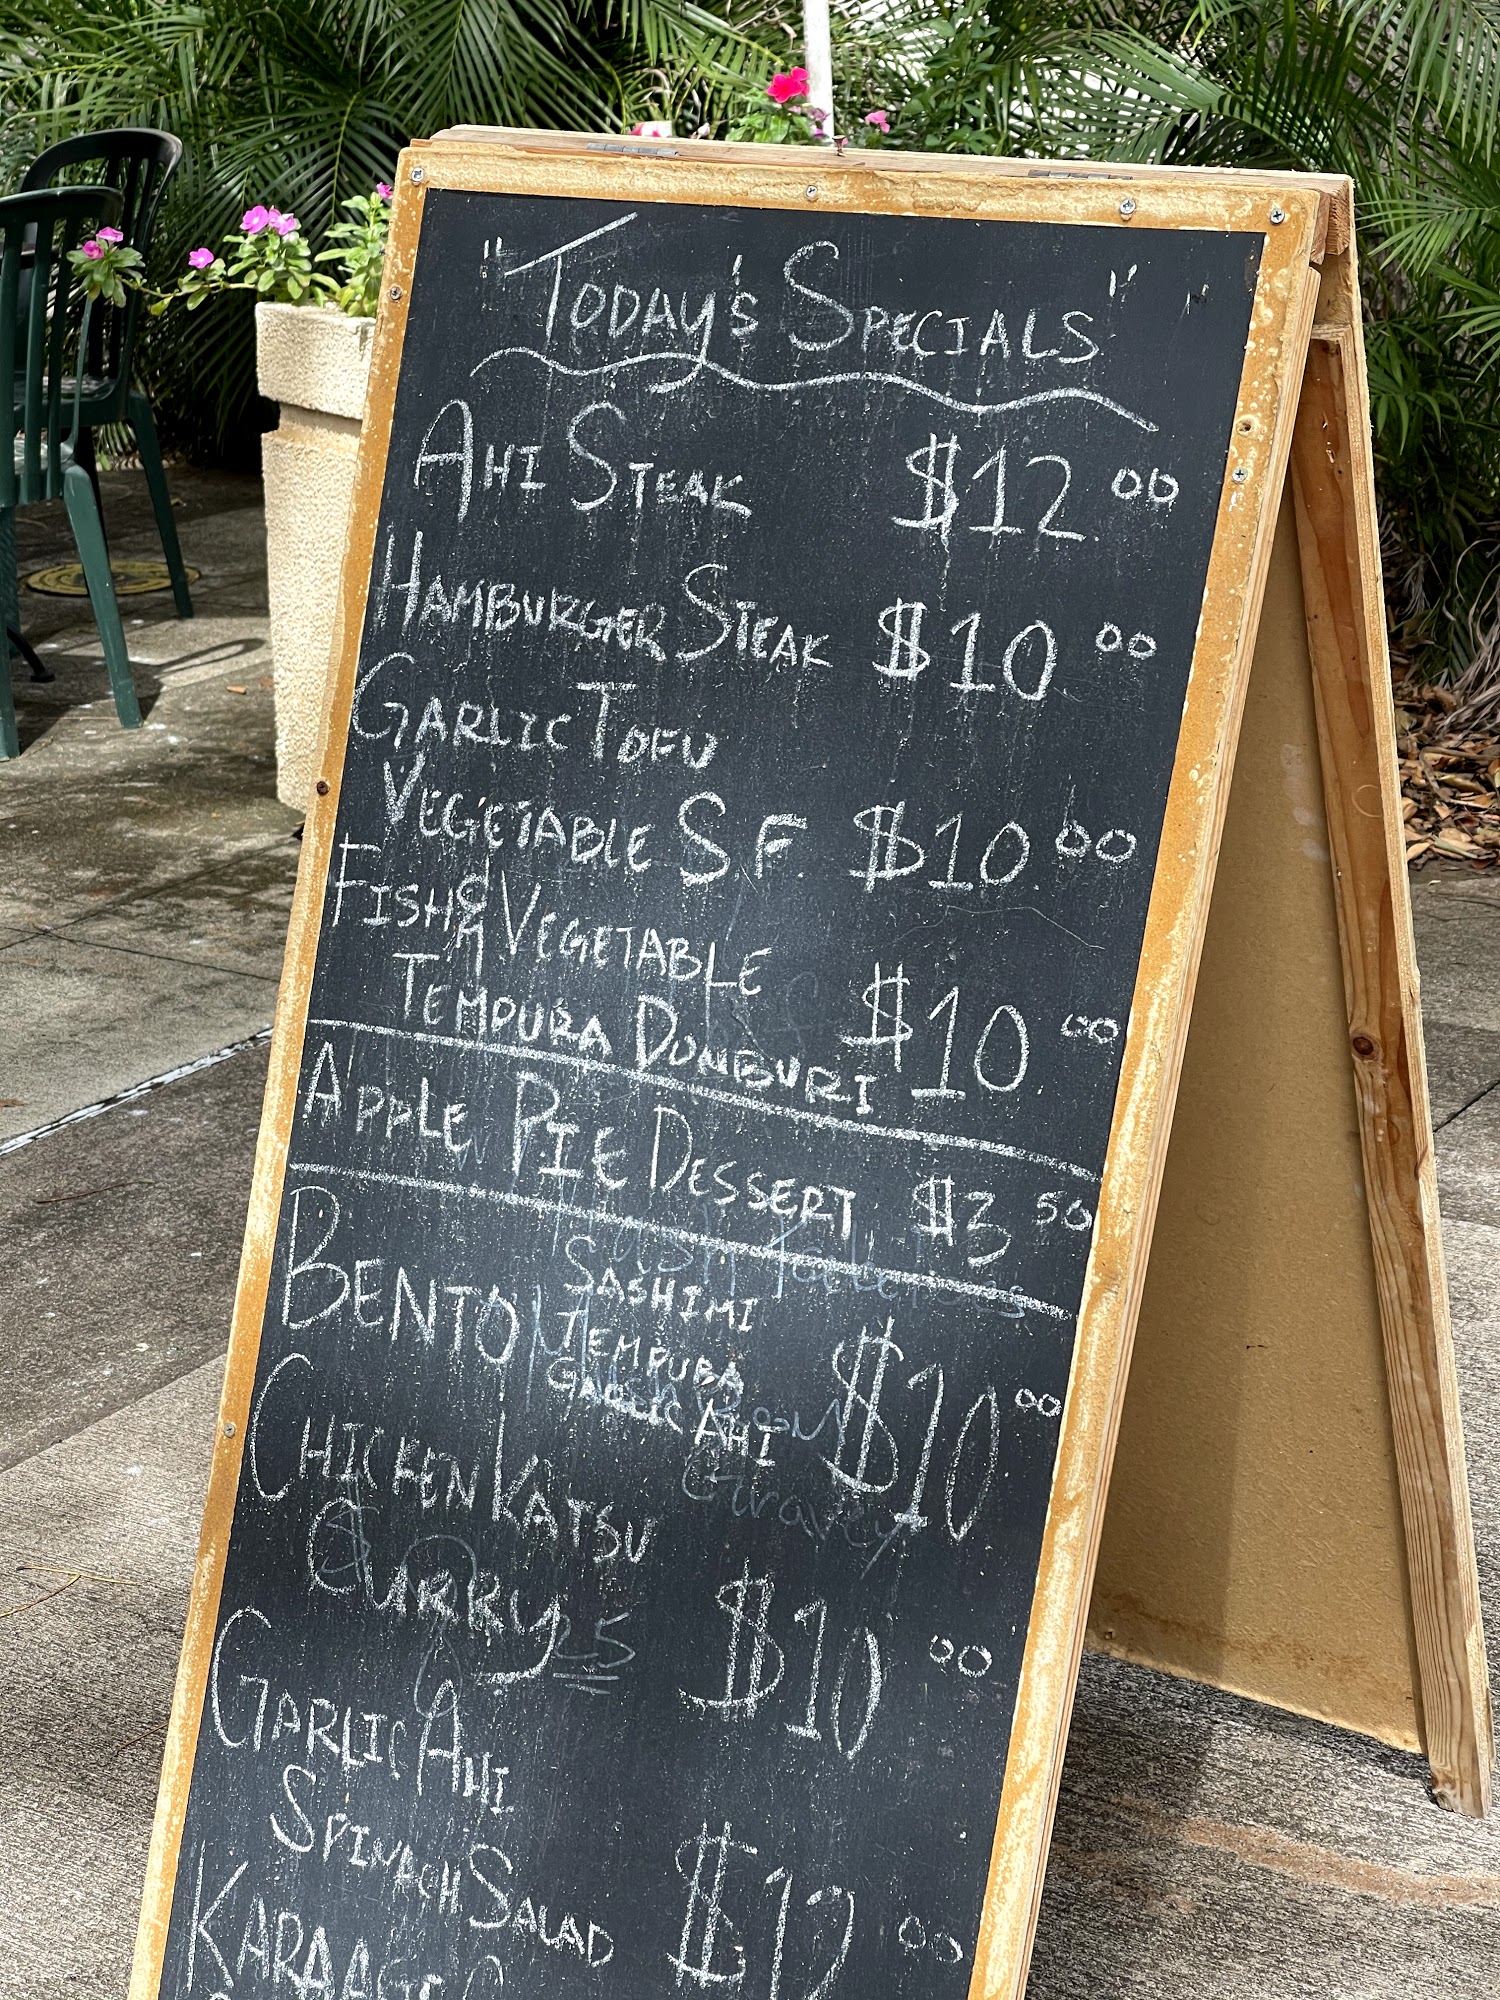 "Today's Specials"
AHI STEAK $12.00
HAMBURGER STEAK $10.00
GARLIC TOFU
VEGETABLE S.F. $10.00
FISH & VEGETABLE
TEMPURA DONBURI $10.00
APPLE PIE DESSERT $3.50
BENTO SASHIMI
TEMPURA
GARLIC AHI $10.00
CHICKEN KATSU
CURRY $10.00
GARLIC AHI
SPINACH SALAD $12.00
KARAAGE